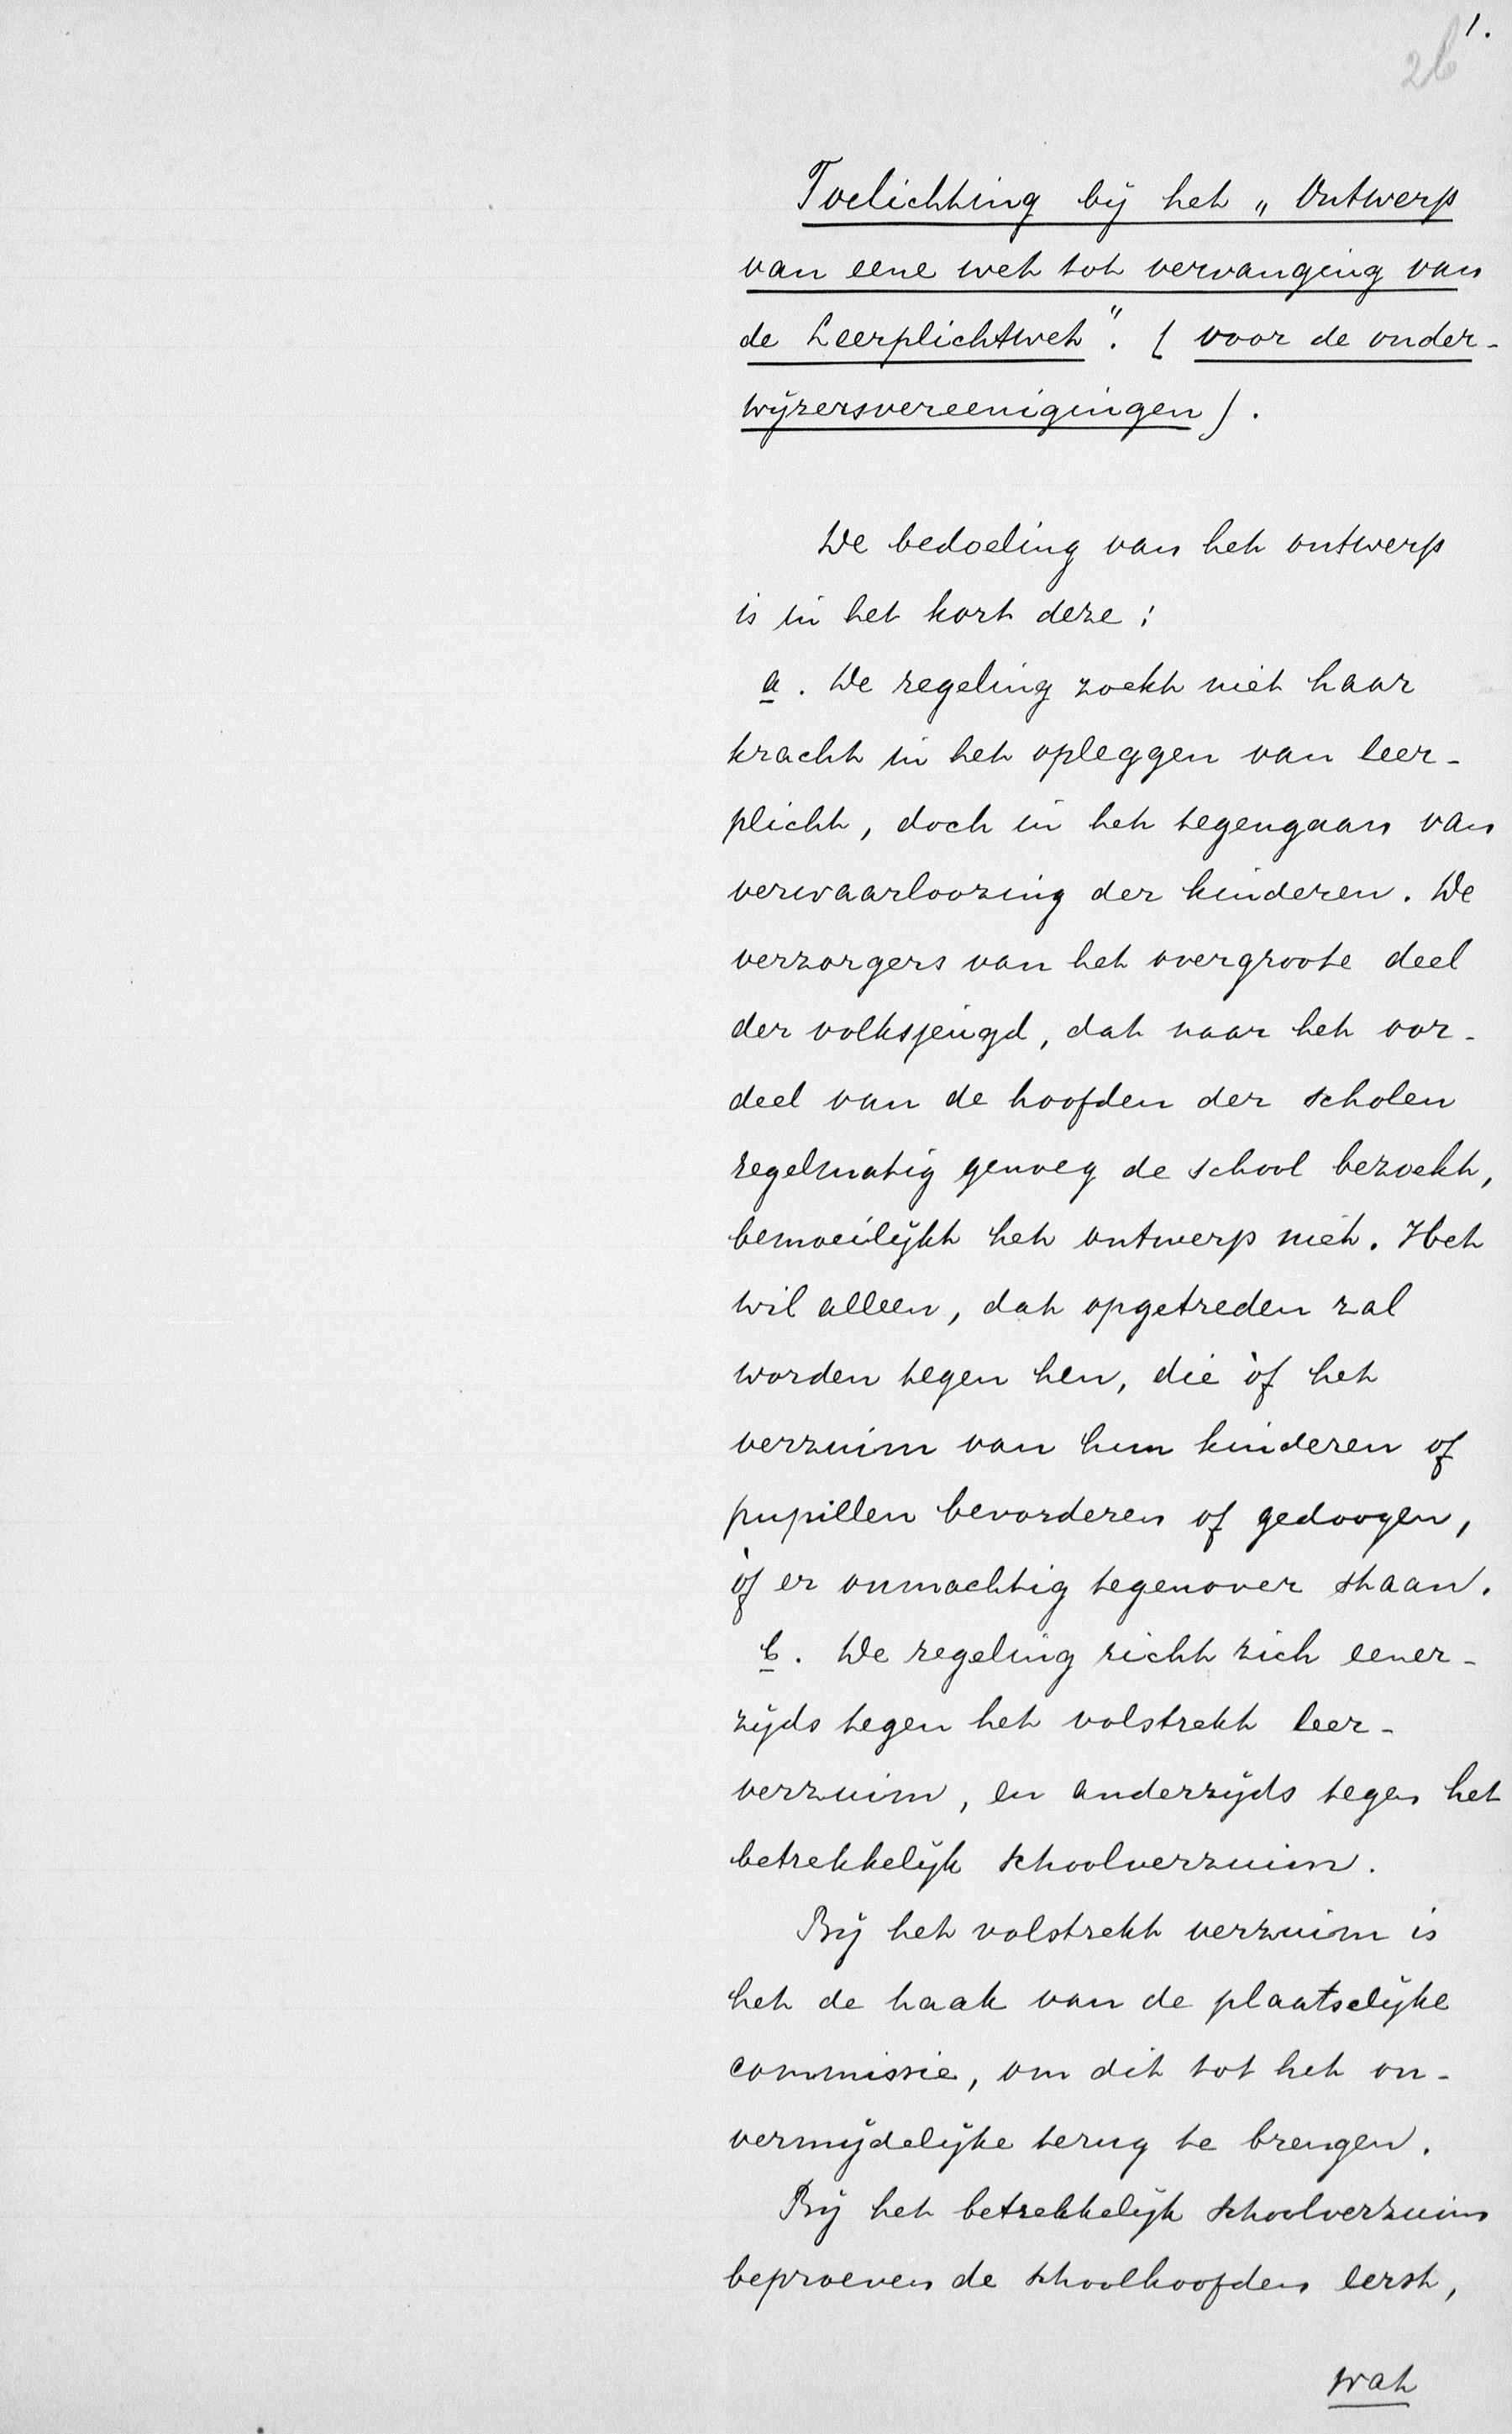 1.
2b
Toelichting bij het „Ontwerp
van eene wet tot vervanging van
de Leerplichtwet". (voor de onder-
wijzersvereenigingen).
De bedoeling van het ontwerp
is in het kort deze:
a. De regeling zoekt niet haar
kracht in het opleggen van leer-
plicht, doch in het tegengaan van
verwaarloozing der kinderen. De
verzorgers van het overgroote deel
der volksjeugd, dat naar het oor-
deel van de hoofden der scholen
regelmatig genoeg de school bezoekt,
bemoeilijkt het ontwerp niet. Het
wil alleen, dat opgetreden zal
worden tegen hen, die òf het
verzuim van hun kinderen of
pupillen bevorderen of gedoogen,
òf er onmachtig tegenover staan.
b. De regeling richt zich eener-
zijds tegen het volstrekt leer-
verzuim, en anderzijds tegen het
betrekkelijk schoolverzuim.
Bij het volstrekt verzuim is
het de taak van de plaatselijke
commissie, om dit tot het on-
vermijdelijke terug te brengen.
Bij het betrekkelijk schoolverzuim
beproeven de schoolhoofden eerst,
wat